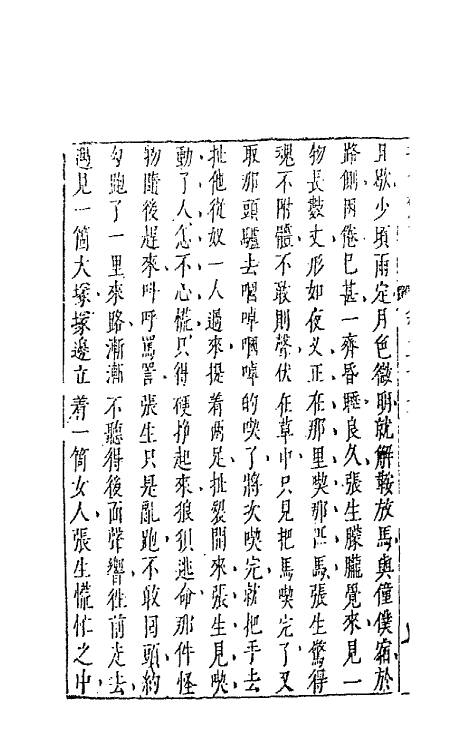 且歇少頃雨定月色微明就解鞍放馬與僮僕宿於
路側困倦已甚一齊昏睡良久張生朦朧覺來見一
物長數丈形如夜叉正在那里喫那匹馬張生驚得
魂不附體不敢則聲伏在草中只見把馬喫完了又
取那頭驢去啯啅啯啅的喫了將次喫完就把手去
扯他從奴一人過來提着兩足扯裂開來張生見喫
動了人怎不心慌只得硬掙起來狼狽逃命那件怪
物隨後趕來叫呼罵詈張生只是亂跑不敢回頭約
勾跑了一里來路漸漸不聽得後面聲響往前走去
遇見一箇大塚塚邊立着一箇女人張生慌忙之中